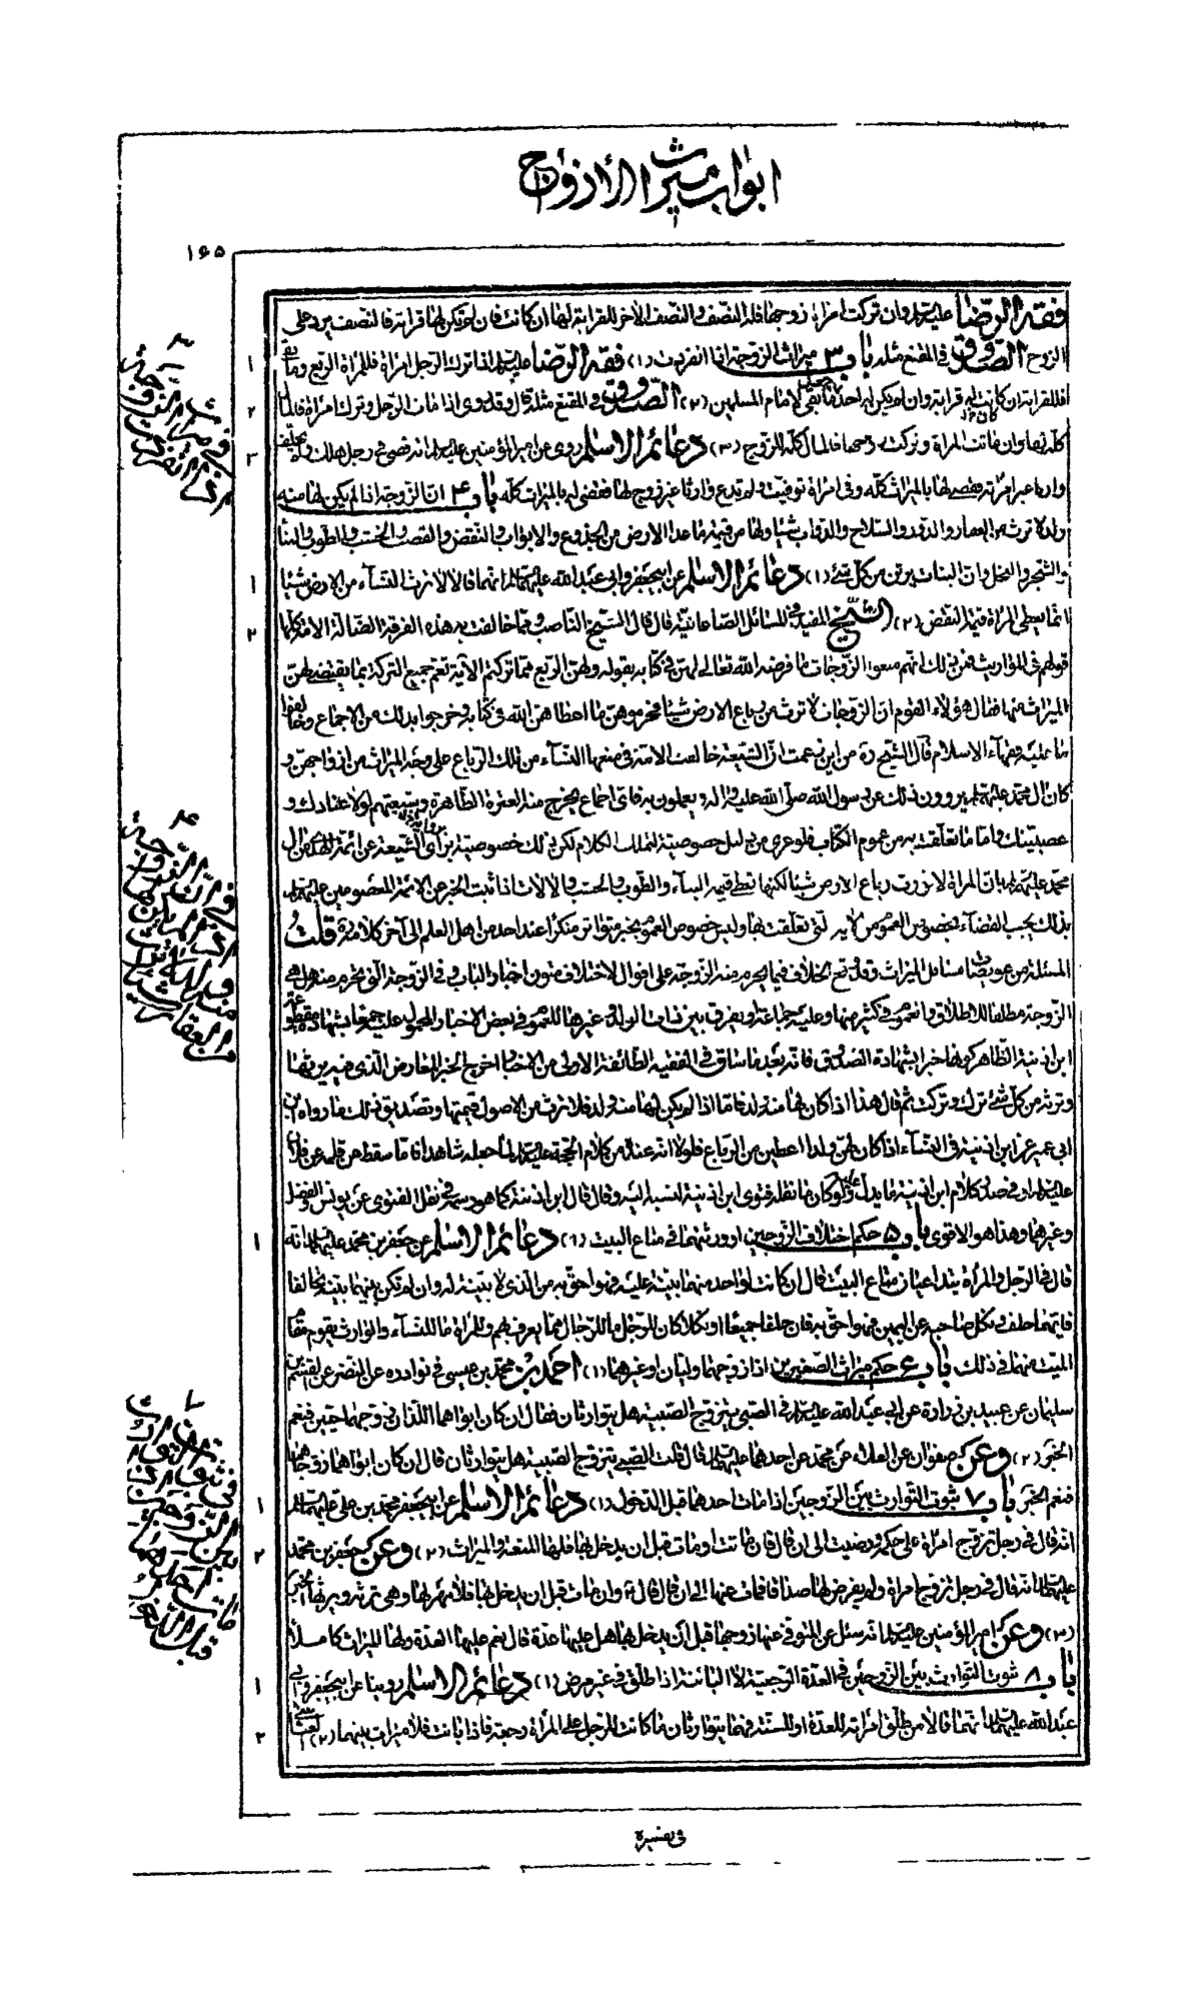 ابواب ميراث الأزواج
١٦٥
فقه الرضا عليه السلام وان تركت امرأة زوجها فله النصف والنصف الآخر للقرابة لها ان كانت فان لم تكن لها قرابة فالنصف يرد على
الزوج الصدوق في المقنع مثله باب ٣ ميراث الزوجة اذا انفردت (١) فقه الرضا عليه السلام اذا ترك الرجل امرأة فللمرأة الربع وما بقى
فللقرابة ان كانت له قرابة وان لم يكن له احد جعل ما بقى لامام المسلمين (٢) الصدوق في المقنع مثله قال وقد روى اذا مات الرجل وترك امرأة فالمال
كله لها وان ماتت المرأة وتركت زوجها فالمال كله للزوج (٣) دعائم الاسلام روى عن امير المؤمنين عليه السلام انه قضى في رجل هلك ولم يخلف
وارثا غير امرأته فقضى لها بالميراث كله وفى امرأة توفيت ولم تدع وارثا غير زوج لها فقضى له بالميراث كله باب ٤ ان الزوجة اذا لم يكن لها منه
ولد لا ترث من العقار والدور والسلاح والدواب شيئا ولها من قيمة ما عدا الارض من الجذوع والابواب والنقض والقصب والخشب والطوب والبناء
والشجر والنخل وان البنات يرثن من كل شئ (١) دعائم الاسلام عن ابى جعفر وابى عبد الله عليهما السلام انهما قالا لا ترث النساء من الارض شيئا
انما تعطى المرأة قيمة النقض (٢) الشيخ المفيد في المسائل الصاغانية قال قال الشيخ الناصب ومما خالفت به هذه الفرقة الضالة الامة كلها
قولهم في المواريث فمن ذلك انهم منعوا الزوجات ما فرضه الله تعالى لهن في كتابه بقوله ولهن الربع مما تركتم الآية فعم جميع التركة بما يقتضيه لهن
الميراث منها فقال هؤلاء القوم ان الزوجات لا ترث من رباع الارض شيئا فحرموهن ما اعطاهن الله في كتابه وخرجوا بذلك من الاجماع وخالفوا
ما عليه فقهاء الاسلام قال الشيخ ره من اين زعمت ان الشيعة خالفت الامة في منعها النساء من تلك الرباع على وجه الميراث من ازواجهن و
كان آل محمد عليهم السلام يروون ذلك عن رسول الله صلى الله عليه وآله ويعملون به فاى اجماع يخرج منه العترة الطاهرة وشيعتهم لولا عنادك و
عصبيتك واما ما تعلقت به من عموم الكتاب فلو عرى من دليل خصوصية لتم لك الكلام لكن ذلك خصوصية برواية الشيعة عن ائمة الهدى من آل
محمد عليهم السلام بان المرأة لا تورث من رباع الارض شيئا لكنها تعطى قيمة البناء والطوب والخشب والآلات اذا ثبت الخبر عن الائمة المعصومين عليهم السلام
بذلك يجب القضاء بخصوص العموم من الآية التى تعلقت بها وليس خصوص العموم بخبر متواتر منكرا عند احد من اهل العلم الى آخر كلامه قلت
المسئلة من عويصات مسائل الميراث وقد وقع الخلاف فيما يحرم منه الزوجة على اقوال لاختلاف متون اخبار الباب وفى الزوجة التى تحرم منه هل هى
الزوجة مطلقا للاطلاق والعموم في كثير منها وعليه جماعة او يفرق بين ذات الولد وغيرها
ابن اذينة الظاهر كونها خبرا بشهادة الصدوق فانه بعد ما ساق في الفقيه الطائفة الاولى من الاخبار اخرج الخبر المعارض الذى فيه يرثها
وترثه من كل شئ ترك وتركت ثم قال هذا اذا كان لها منه ولد فاما اذا لم يكن لها منه ولد فلا ترث من الاصول الا قيمتها وتصديق ذلك ما رواه ابن
ابى عمير عن ابن اذينة في النساء اذا كان لهن ولد اعطين من الرباع فلولا انه عنده من كلام الحجة عليه السلام لما جعله شاهدا
وغيرهما وهذا هو الاقوى باب ٥ حكم اختلاف الزوجين او ورثتهما في متاع البيت (١) دعائم الاسلام عن جعفر بن محمد عليهما السلام انه
قال في الرجل والمرأة يتداعيان متاع البيت قال ان كانت لواحد منهما بينة عليه فهو احق به من الذى لا بينة له وان لم تكن بينهما بينة تحالفا
فايهما حلف ونكل صاحبه عن اليمين فهو احق به فان حلفا جميعا او نكلا كان للرجل ما للرجال مما يعرف بهم وللمرأة ما للنساء والوارث يقوم مقام
الميت منهما في ذلك باب ٦ حكم ميراث الصغيرين اذا زوجهما وليان او غيرهما (١) احمد بن محمد بن عيسى في نوادره عن النضر عن القاسم بن
سليمان عن عبيد بن زرارة عن ابى عبد الله عليه السلام في الصبى يتزوج الصبية هل يتوارثان فقال ان كان ابواهما اللذان زوجهما حيين فنعم
الخبر (٢) وعن صفوان عن العلاء عن محمد عن احدهما عليهما السلام قال قلت الصبى يتزوج الصبية هل يتوارثان قال ان كان ابواهما زوجاهما
فنعم الخبر باب ٧ ثبوت التوارث بين الزوجين اذا مات احدهما قبل الدخول (١) دعائم الاسلام عن ابى جعفر محمد بن على عليهما السلام
انه قال في رجل تزوج امرأة على حكمه ورضيت الى ان قال فان ماتت او مات قبل ان يدخل بها فلها المتعة والميراث (٢) وعن جعفر بن محمد
عليهما السلام انه قال في رجل تزوج امرأة ولم يفرض لها صداقا فمات عنها الى ان قال قال وان مات قبل ان يدخل بها فلا مهر لها وهى ترثه ويرثها الخبر
(٣) وعن امير المؤمنين عليه السلام انه سئل عن المتوفى عنها زوجها قبل ان يدخل بها هل عليها عدة قال نعم عليها العدة ولها الميراث كاملا
باب ٨ ثبوت التوارث بين الزوجين في العدة الرجعية لا البائنة اذا طلق في غير مرض (١) دعائم الاسلام روينا عن ابى جعفر وابى
عبد الله عليهما السلام انهما قالا من طلق امرأته للعدة او للسنة فهما يتوارثان ما كانت للرجل على المرأة رجعة فاذا بانت فلا ميراث بينهما (٢) العياشى
في تفسيره
٣
في ميراث الزوجة اذا انفردت
٤
في ان الزوجة اذا لم يكن لها منه ولد لا ترث من العقار شيئا
٧
في ثبوت التوارث بين الزوجين اذا مات احدهما قبل الدخول